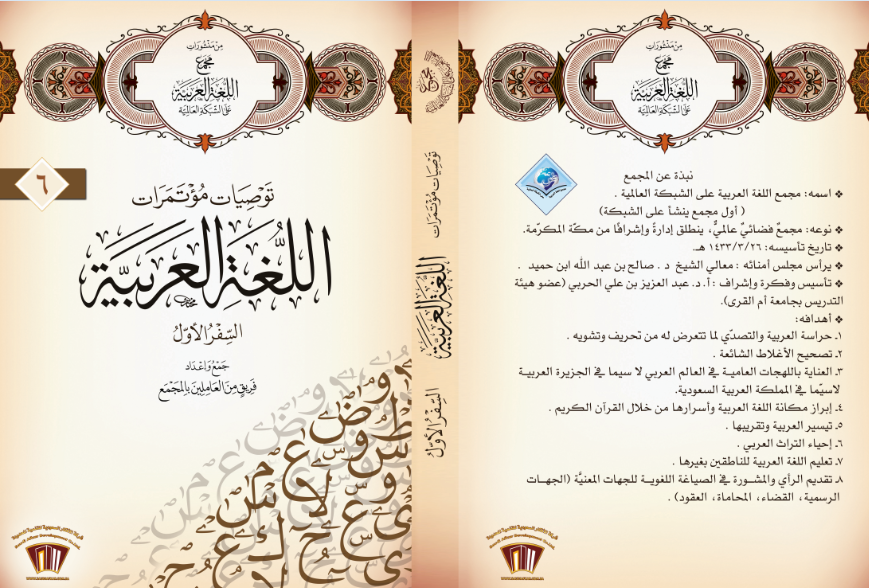 من منشورات
مجمع
اللغة العربية
على الشبكة العالمية
٦
توصيات مؤتمرات
اللغة العربية
السفر الأول
جمع وإعداد
فريق من العاملين بالمجمع
توصيات مؤتمرات
اللغة العربية
السفر الأول
من منشورات
مجمع
اللغة العربية
على الشبكة العالمية
نبذة عن المجمع
❖ اسمه: مجمع اللغة العربية على الشبكة العالمية .
( أول مجمع ينشأ على الشبكة)
❖ نوعه: مجمعٌ فضائيٌّ عالميٌّ، ينطلق إدارةً وإشرافًا من مكّة المكرّمة.
❖ تاريخ تأسيسه: ١٤٣٣/٣/٢٦ هـ.
❖ يرأس مجلس أمنائه : معالي الشيخ د . صالح بن عبد الله ابن حميد .
❖ تأسيس وفكرة وإشراف : أ. د. عبد العزيز بن علي الحربي (عضو هيئة
التدريس بجامعة أم القرى).
❖ أهدافه:
١. حراسة العربية والتصدّي لما تتعرض له من تحريف وتشويه .
٢. تصحيح الأغلاط الشائعة .
٣. العناية باللهجات العامية في العالم العربي لا سيما في الجزيرة العربية
لاسيّما في المملكة العربية السعودية.
٤. إبراز مكانة اللغة العربية وأسرارها من خلال القرآن الكريم .
٥. تيسير العربية وتقريبها .
٦. إحياء التراث العربي .
٧. تعليم اللغة العربية للناطقين بغيرها .
٨. تقديم الرأي والمشورة في الصياغة اللغوية للجهات المعنيَّة (الجهات
الرسمية، القضاء، المحاماة، العقود) .